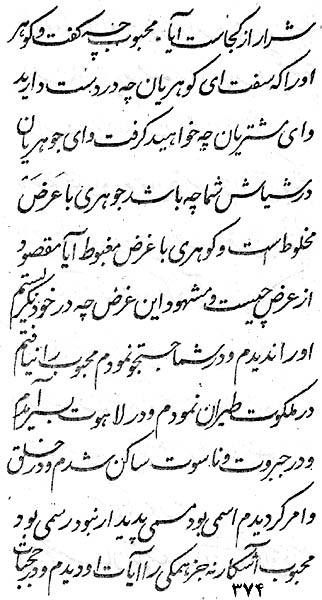 شرار از کجاست آیا محبوب چه گفت و گوهر
او را که سفت ای گوهریان چه در دست دارید
و ای مشتریان چه خواهید گرفت و ای جوهریان
در شماش شما چه باشد جوهری با عَرَض
مخلوط است و گوهری با غرض مغبوط آیا مقصود
از عرض چیست و مشهود این غرض چه در خود نگریستم
او را ندیدم و در شما جستجو نمودم محبوب را نیافتم
در ملکوت طیران نمودم و در لاهوت بسیر آمدم
و در جبروت و ناسوت ساکن شدم و در خلق
و امر گردیدم اسمی بود مسمی پدیدار نبود رسمی بود
محبوب آشکار نه جز همگی را آیات او دیدم و در حجبات
۳۷۴